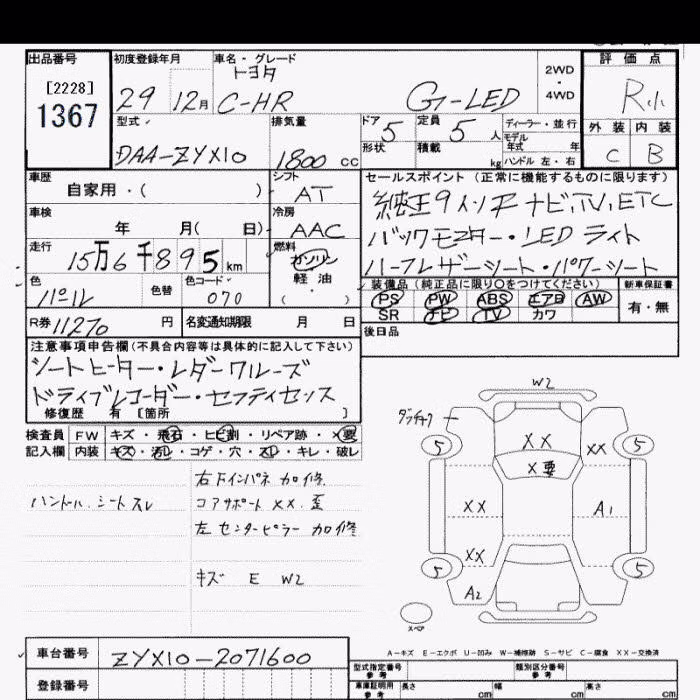 出品番号
[2228]
1367
初度登録年月
29 12月
車名・グレード
トヨタ
C-HR G-LED
2WD
・
4WD
評価点
R小
型式
DAA-ZYX10
排気量
1800 cc
ドア 5
形状
定員 5 人
積載 kg
ディーラー・並行
モデル年式 年
ハンドル 左・右
外装 内装
C B
車歴
自家用・( )
シフト
AT
車検
年 月( 日)
冷房
AAC
走行
15万6千895km
燃料
ガソリン
軽油
色
パール
色替
色コード
070
R券 11270 円
名変通知期限 月 日
セールスポイント(正常に機能するものに限ります)
純正9インチナビ,TV,ETC
バックモニター・LEDライト
ハーフレザーシート・パワーシート
装備品(純正品に限り○をつけてください)
PS PW ABS エアB AW
SR ナビ TV カワ
新車保証書
有・無
後日品
注意事項申告欄(不具合内容等は具体的に記入して下さい)
シートヒーター・レーダークルーズ
ドライブレコーダー・セーフティセンス
修復歴 有 [箇所 ]
検査員 FW キズ・飛石・ヒビ割・リペア跡・×要
記入欄 内装 キズ・汚レ・コゲ・穴・スレ・キレ・破レ
ハンドル.シートスレ
右下インパネ加修.
コアサポートXX.歪
左センターピラー加修
キズ E W2
W2
XX
XX
X要
5
5
XX
A1
XX
5
5
A2
スペア
A-キズ E-エクボ U-凹み W-補修跡 S-サビ C-腐食 XX-交換済
車台番号
ZYX10-2071600
登録番号
型式指定番号
参考
類別区分番号
参考
車庫証明用
参考
長さ cm
幅 cm
高さ cm